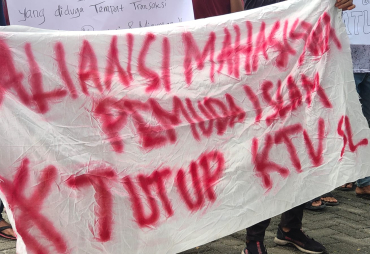 yang diduga Tempat Transaksi
ALIANSI MAHASISWA
PEMUDA ISLAM
X TUTUP KTV SL